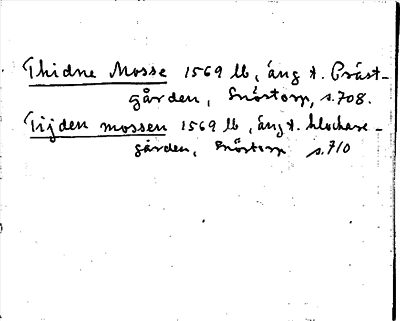 Thidne Mosse 1569 lb, äng t. Präst-
gården, Snöstorp, s. 708.
Tijden mossen 1569 lb, äng t. klockare-
gården, Snöstorp s. 710